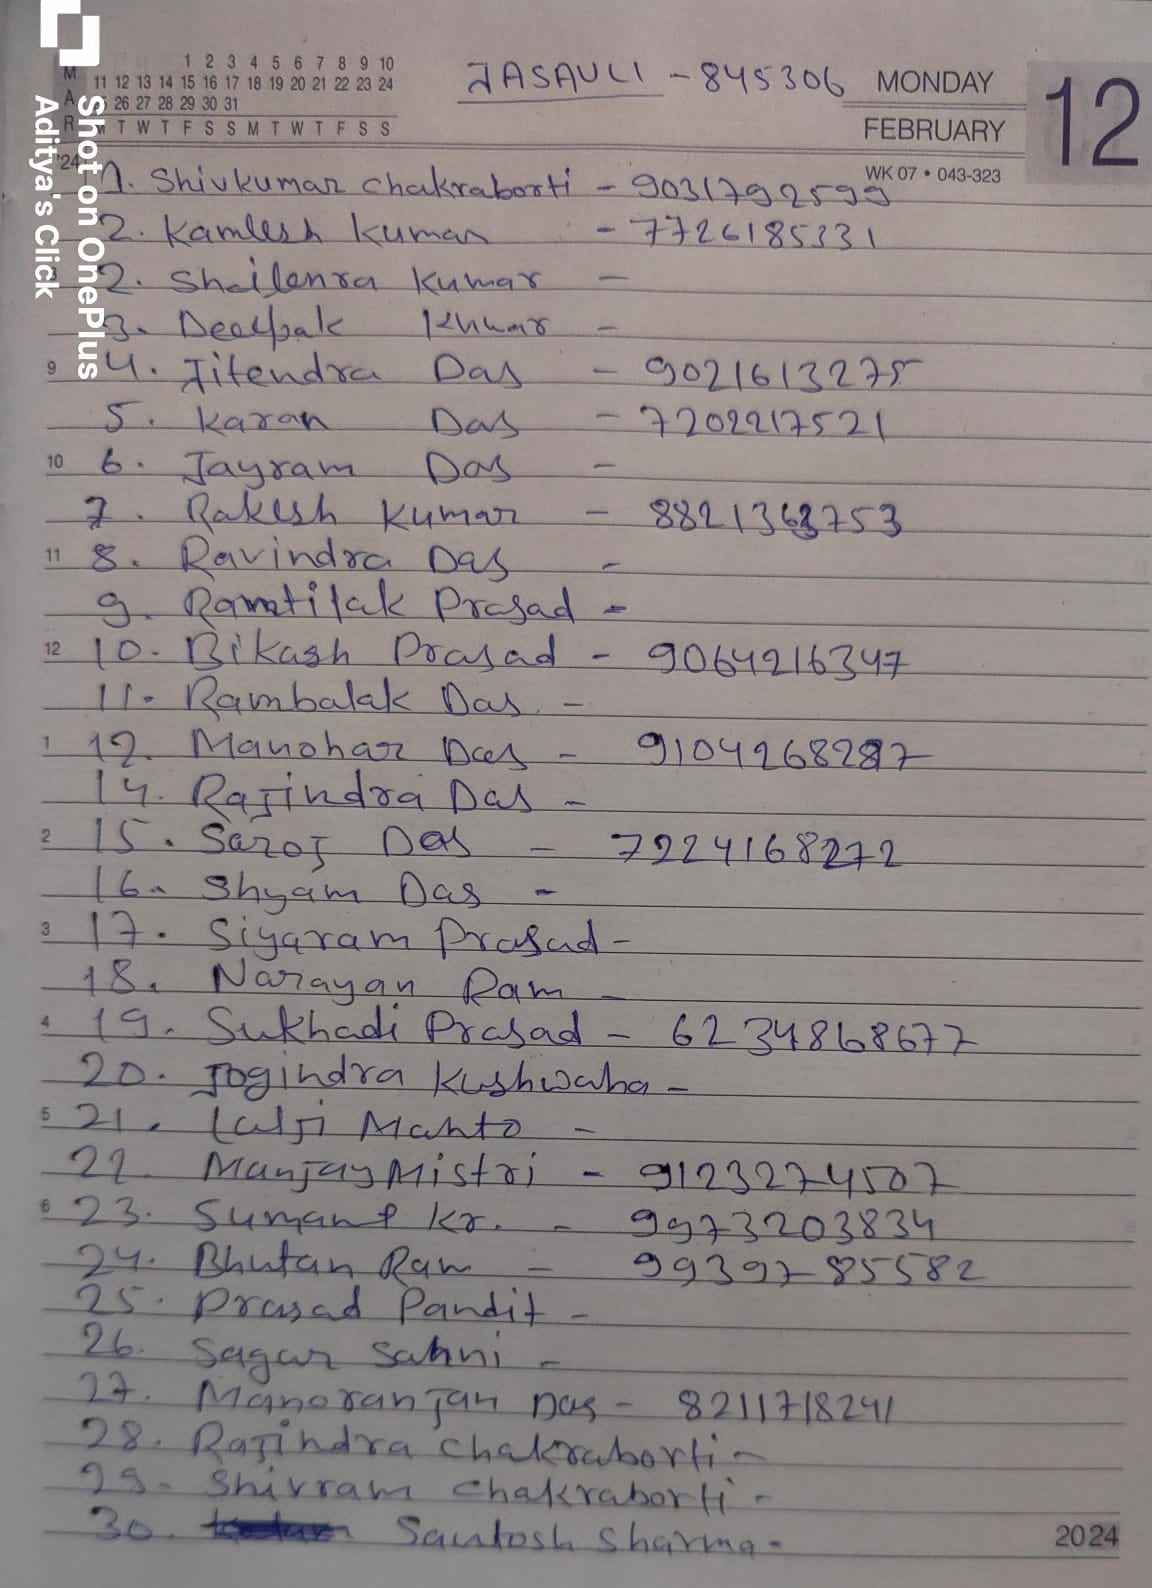 1 2 3 4 5 6 7 8 9 10
M 11 12 13 14 15 16 17 18 19 20 21 22 23 24
A 26 27 28 29 30 31
R T W T F S S M T W T F S S
'24
JASAULI - 845306
MONDAY
FEBRUARY
12
WK 07 • 043-323
Shot on OnePlus
Aditya's Click
1. Shivkumar Chakraborti - 9031792599
2. Kamlesh Kumar - 7726185331
2. Shailenra Kumar -
3. Deepak Khuar -
9 4. Jitendra Das - 9021613275
5. Karan Das - 7202217521
10 6. Jayram Das -
7. Rakesh Kumar - 8821363753
11 8. Ravindra Das -
9. Ramtilak Prasad -
12 10. Bikash Prasad - 9064216347
11. Rambalak Das -
1 12. Manohar Das - 9104268287
14. Rajindra Das -
2 15. Saroj Das - 7224168272
16. Shyam Das -
3 17. Siyaram Prasad -
18. Narayan Ram -
4 19. Sukhadi Prasad - 6234868677
20. Jogindra Kushwaha -
5 21. Lalji Mahto -
22. Manjay Mistri - 9123274507
6 23. Sumant Kr. - 9973203834
24. Bhutan Ram - 9939785582
25. Prasad Pandit -
26. Sagar Sahni -
27. Manoranjan Das - 8211718241
28. Rajindra Chakraborti -
29. Shivram Chakraborti -
30. Santosh Sharma -
2024